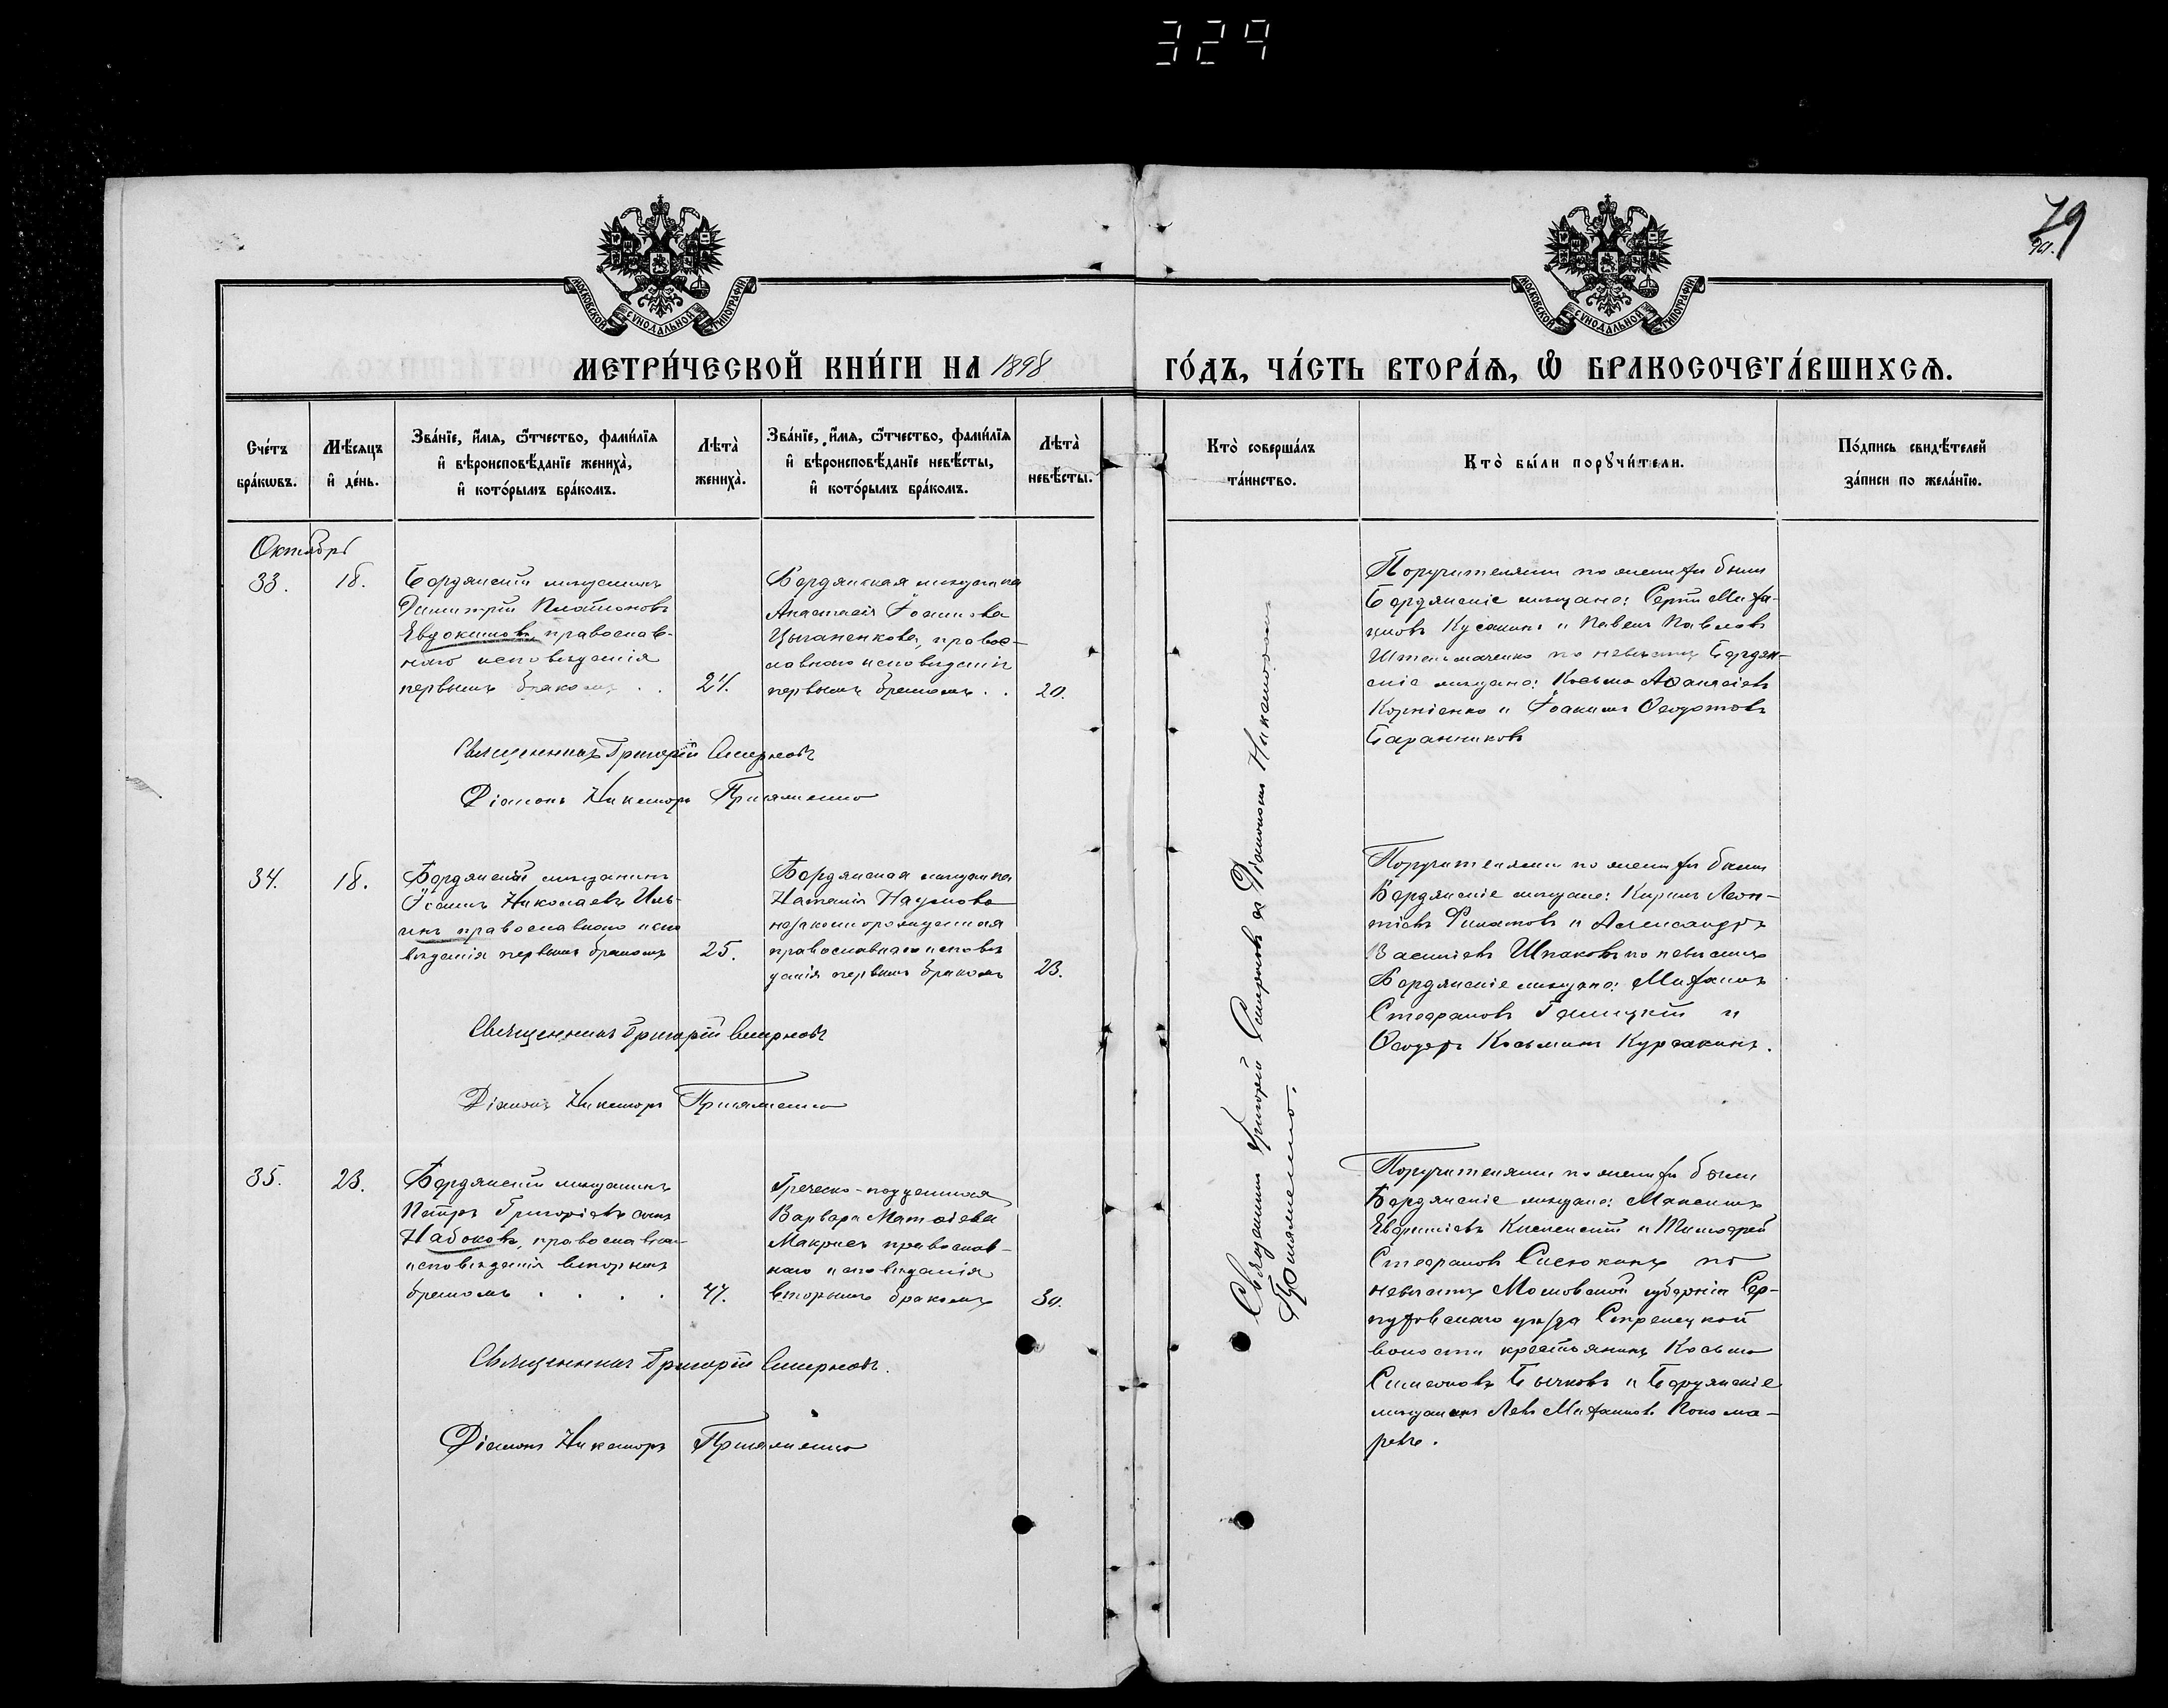 329
79
МОСКОВСКОЙ СѴНОДАЛЬНОЙ ТИПОГРАФІИ
МОСКОВСКОЙ СѴНОДАЛЬНОЙ ТИПОГРАФІИ
МЕТРИ́ЧЕСКОЙ КНИ́ГИ НА 1898 ГО́ДЪ, ЧА́СТЬ ВТОРА́Ѧ, Ѽ БРАКОСОЧЕТА́ВШИХСѦ.
Сче́тъ бра́кѡвъ.
Мѣ́сѧцъ и҆ де́нь.
Зва́нїе, и҆́мѧ, ѻ҆́тчество, фами́лїѧ и҆ вѣроисповѣ́данїе жениха̀, и҆ кото́рымъ бра́комъ.
Лѣта̀ жениха̀.
Зва́нїе, и҆́мѧ, ѻ҆́тчество, фами́лїѧ и҆ вѣроисповѣ́данїе невѣ́сты, и҆ кото́рымъ бра́комъ.
Лѣта̀ невѣ́сты.
Кто̀ соверша́лъ та́инство.
Кто̀ бы́ли порꙋчи́тели.
По́дпись свидѣ́телей за́писи по жела́нїю.
Октябрь
33.
18.
Бердянскій мѣщанинъ
Димитрій Платоновъ
Евдокимовъ, православ-
наго исповѣданія
первымъ бракомъ . .
24.
Бердянская мѣщанка
Анастасія Іоакимова
Цыганенкова, правос-
лавнаго исповѣданія
первымъ бракомъ . .
20.
Поручителями по женихѣ были
Бердянскіе мѣщане: Сергій Миха-
иловъ и Павелъ Павловъ
по невѣстѣ Бердян-
скіе мѣщане: Косьма Аѳанасіевъ
Корніенко и Іоакимъ Ѳеодотовъ
Баранниковъ
Священникъ Григорій Смирновъ
Діаконъ Никаноръ
34.
18.
Бердянскій мѣщанинъ
Іоаннъ Николаевъ Иль-
инъ православнаго испо
вѣданія первымъ бракомъ
25.
Бердянская мѣщанка
Наталія Наумова
незаконнорожденная
православнаго исповѣ
данія первымъ бракомъ
23.
Поручителями по женихѣ были
Бердянскіе мѣщане: Кирилъ Леон-
тіевъ Филатовъ и Александръ
Василіевъ Шпаковъ по невѣстѣ
Бердянскіе мѣщане: Михаилъ
Стефановъ Галицкій и
Ѳеодоръ Косьминъ Курчакинъ.
Священникъ Григорій Смирновъ
Діаконъ Никаноръ
35.
23.
Бердянскій мѣщанинъ
Петръ Григоріевъ сынъ
Набоковъ, православнаго
исповѣданія вторымъ
бракомъ . . . .
44.
Греческо-подданная
Варвара Матѳіева
Макрисъ православ-
наго исповѣданія
вторымъ бракомъ
30.
Священникъ Григорій Смирновъ и Діаконъ Никаноръ
Поручителями по женихѣ были
Бердянскіе мѣщане: Максимъ
Евфиміевъ и Тимофей
Стефановъ Сисюкинъ по
невѣстѣ Московской губерніи Сер-
пуховскаго уѣзда Стрелецкой
волости крестьянинъ Косьма
Симеоновъ Бычковъ и Бердянскіе
мѣщанинъ Левъ Михаиловъ Понома-
ревъ.
Священникъ Григорій Смирновъ.
Діаконъ Никаноръ